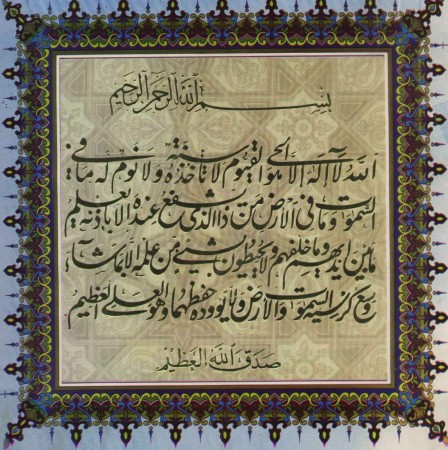 بسم الله الرحمن الرحيم
الله لا اله الا هو الحي القيوم لا تاخذه سنة ولا نوم له ما في
السموات وما في الارض من ذا الذي يشفع عنده الا باذنه يعلم
ما بين ايديهم وما خلفهم ولا يحيطون بشيء من علمه الا بما شآء
وسع كرسيه السموات والارض ولا يؤوده حفظهما وهو العلي العظيم
صدق الله العظيم